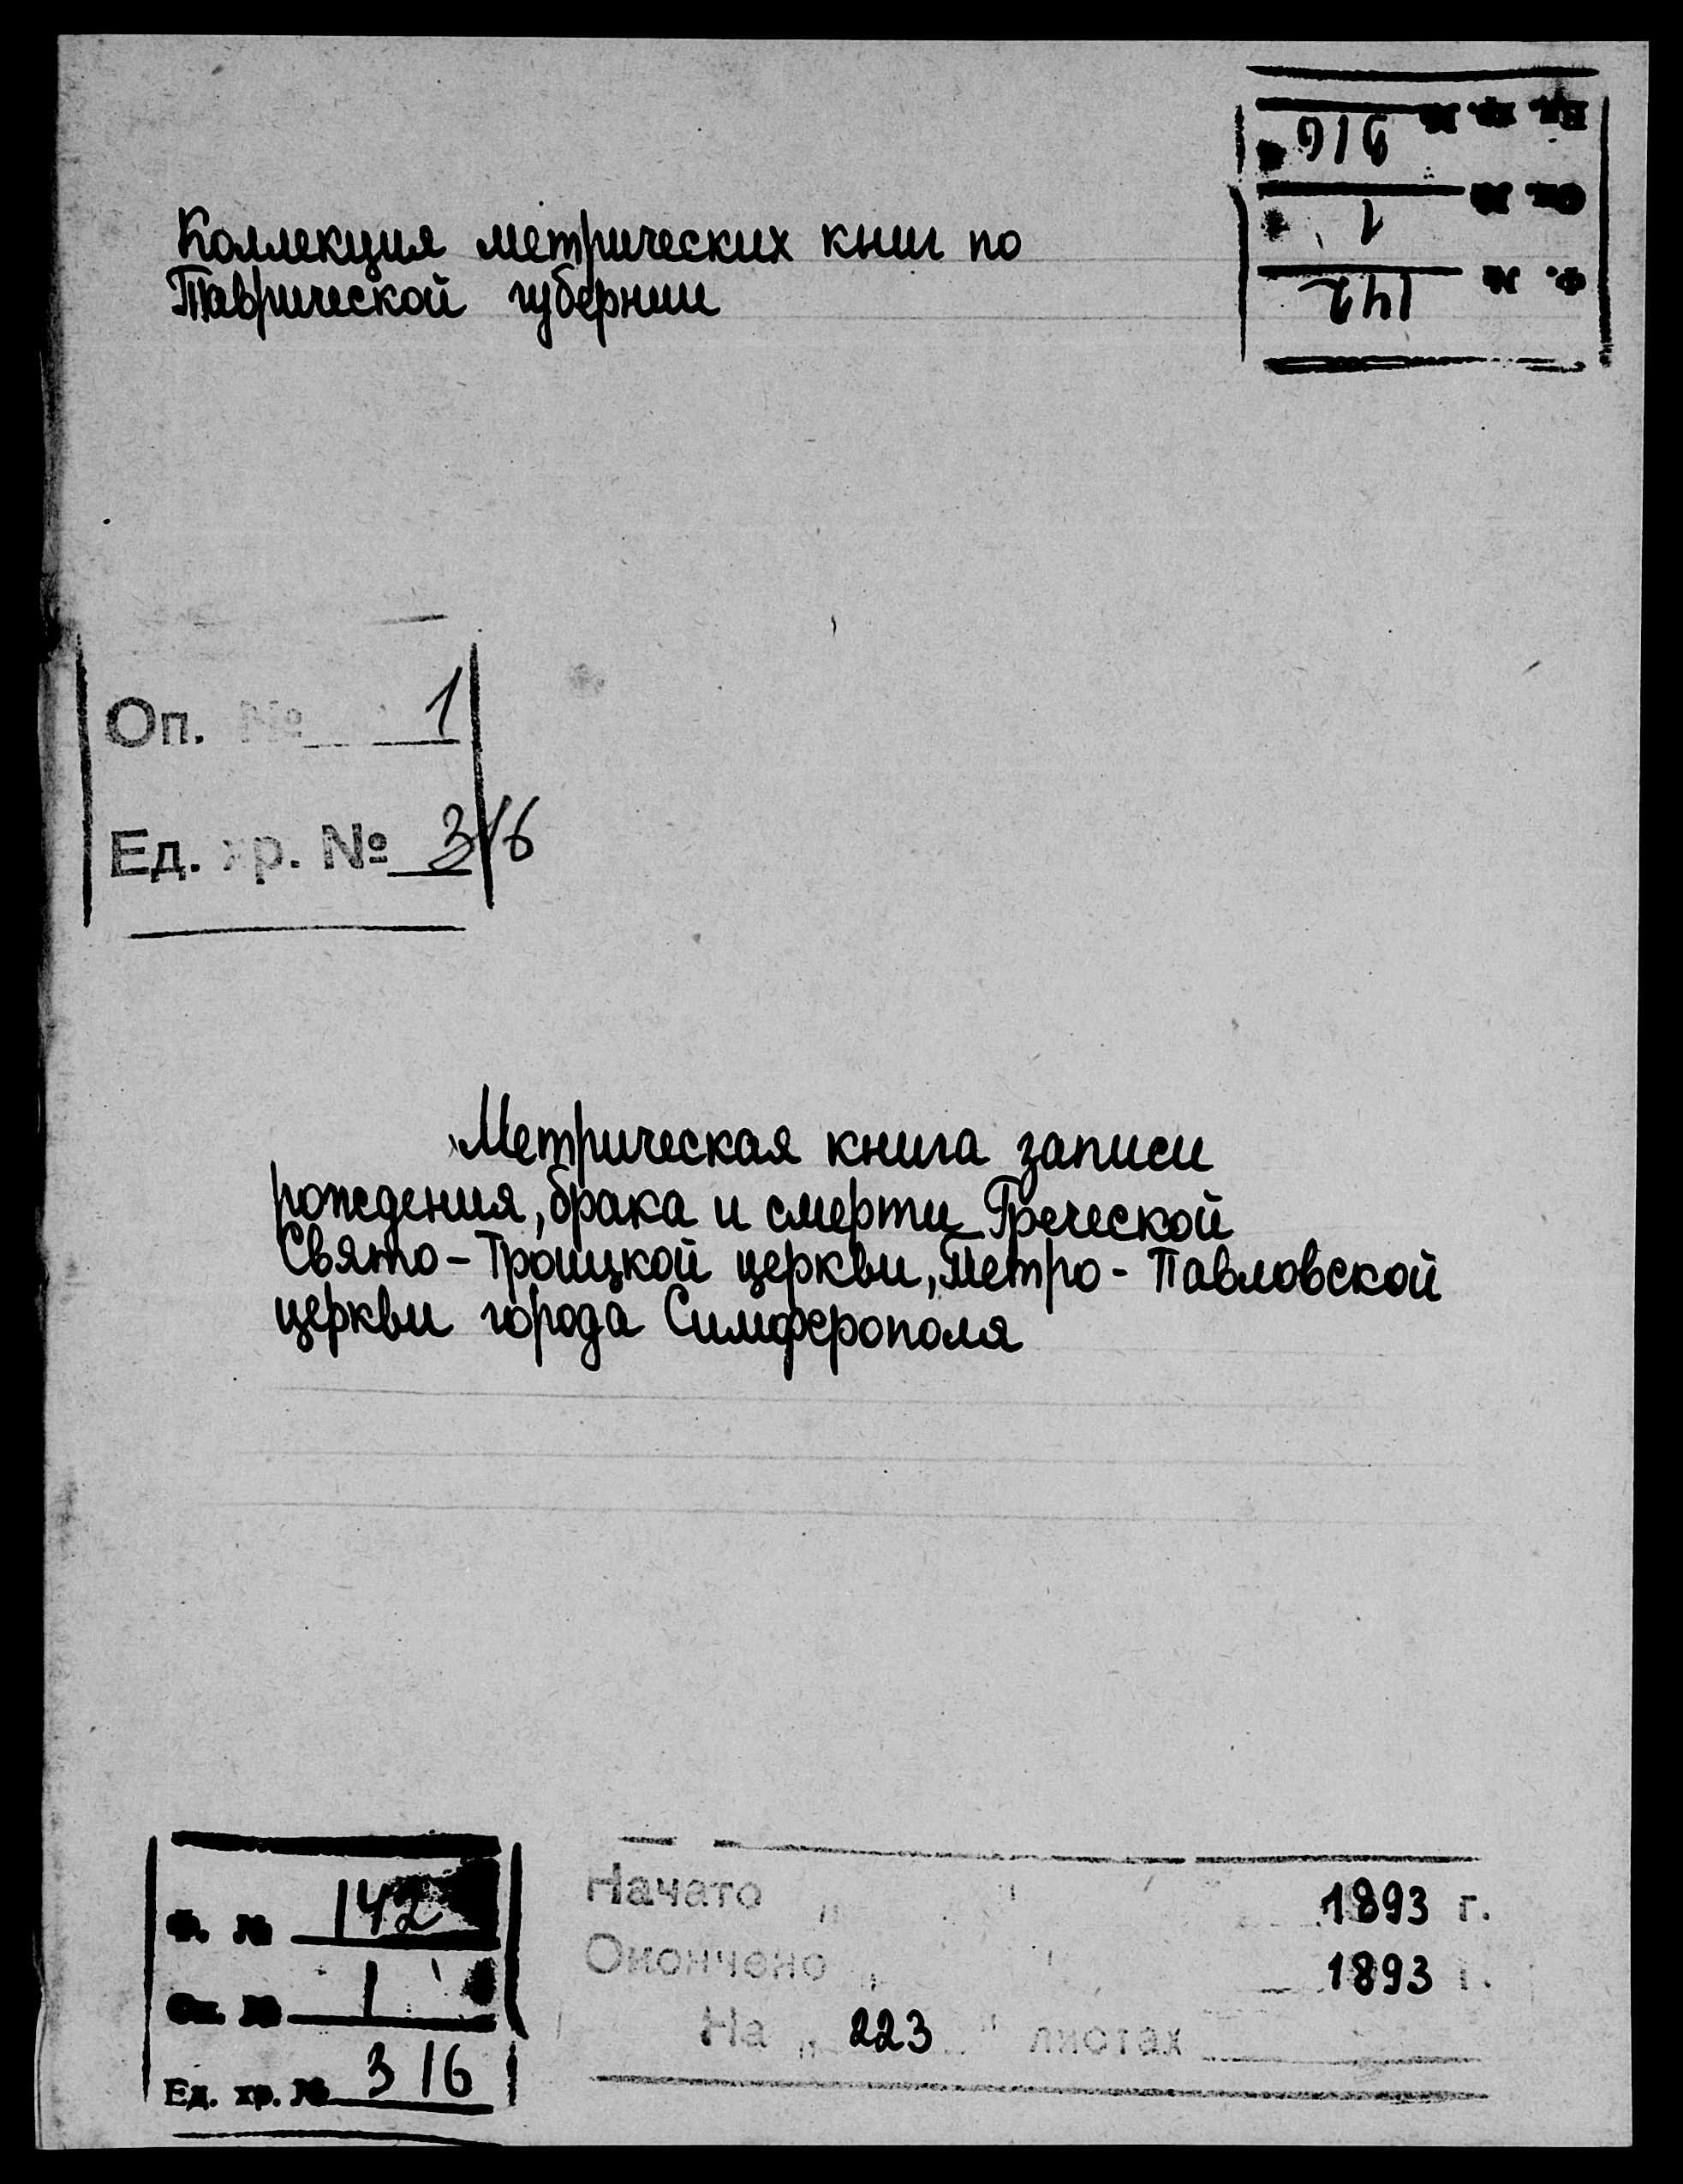 Ед. хр. № 316
Оп. № 1
Ф. № 142
Коллекция метрических книг по
Таврической губернии
Оп. № 1
Ед. хр. № 316
Метрическая книга записи
рождения, брака и смерти Греческой
Свято-Троицкой церкви, Петро-Павловской
церкви города Симферополя
Ф. № 142
Оп. № 1
Ед. хр. № 316
Начато „ " 1893 г.
Окончено „ " 1893 г.
На „ 223 " листах